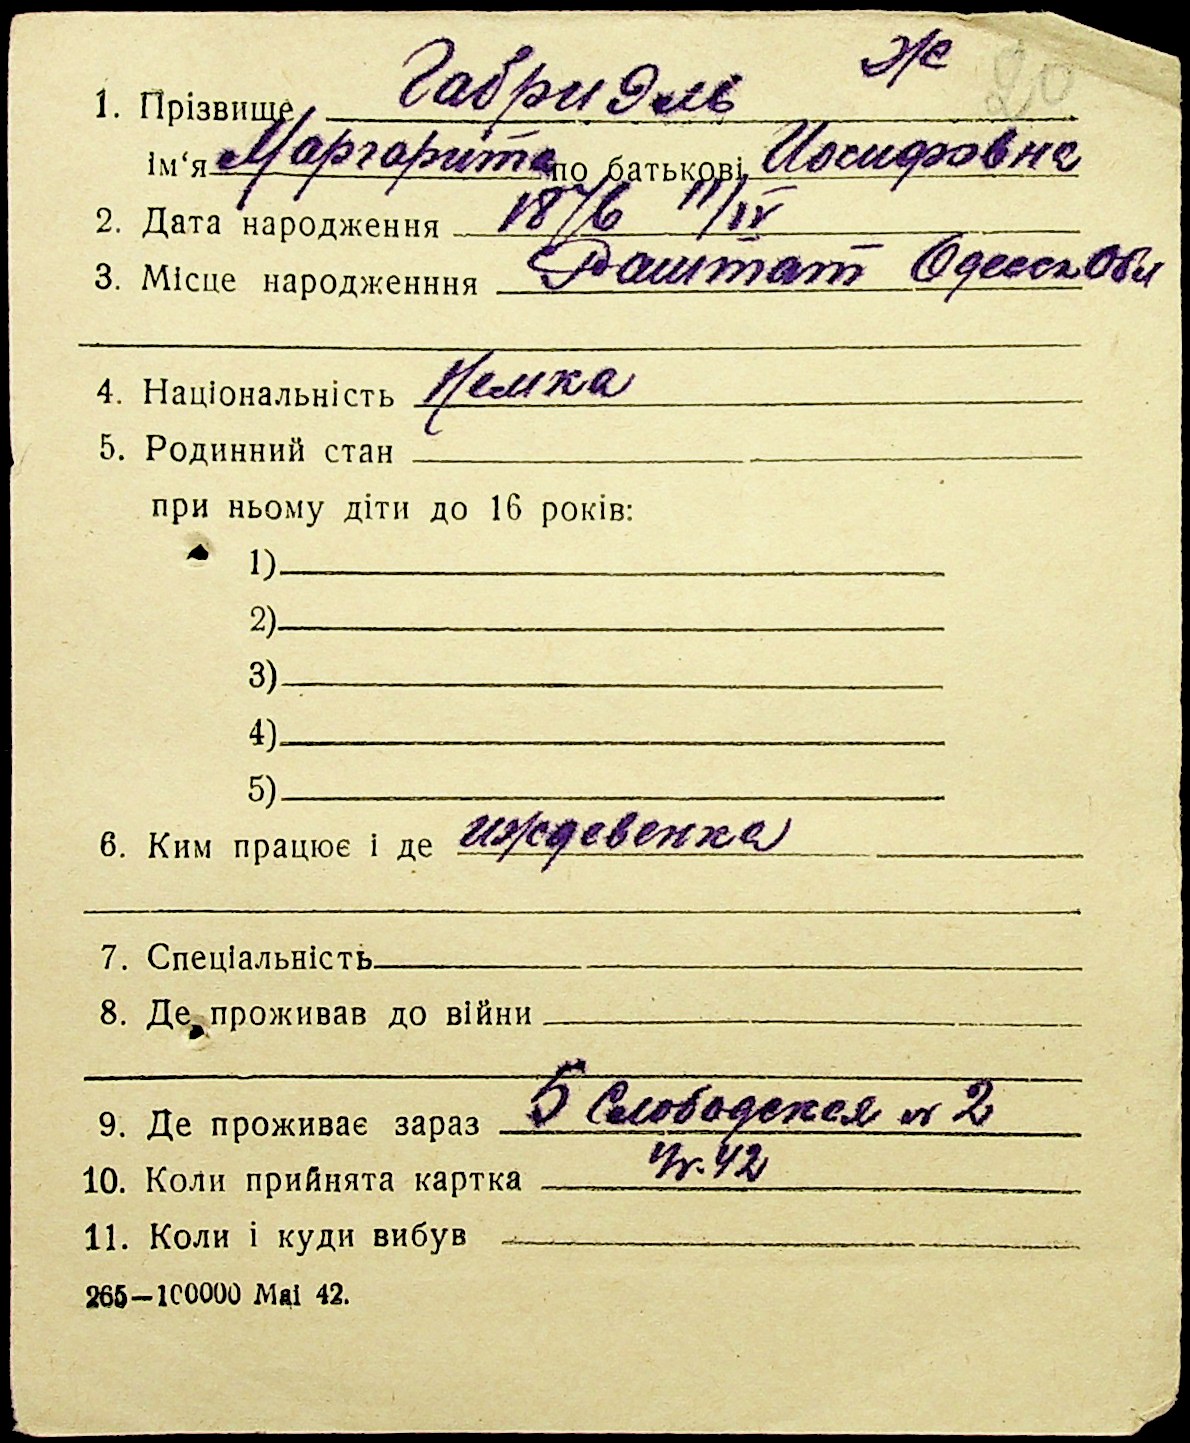 Ж 20
1. Прізвище Габриэль
ім‘я Маргарита по батькові Иосифовна
2. Дата народження 1876 11/IV
3. Місце народженння Раштат Одесск Обл
4. Національність Немка
5. Родинний стан
при ньому діти до 16 років:
1)
2)
3)
4)
5)
6. Ким працює і де иждевенка
7. Спеціальність
8. Де проживав до війни
9. Де проживає зараз 5 Слободская № 2
10. Коли прийнята картка 42
11. Коли і куди вибув
265—100000 Маі 42.